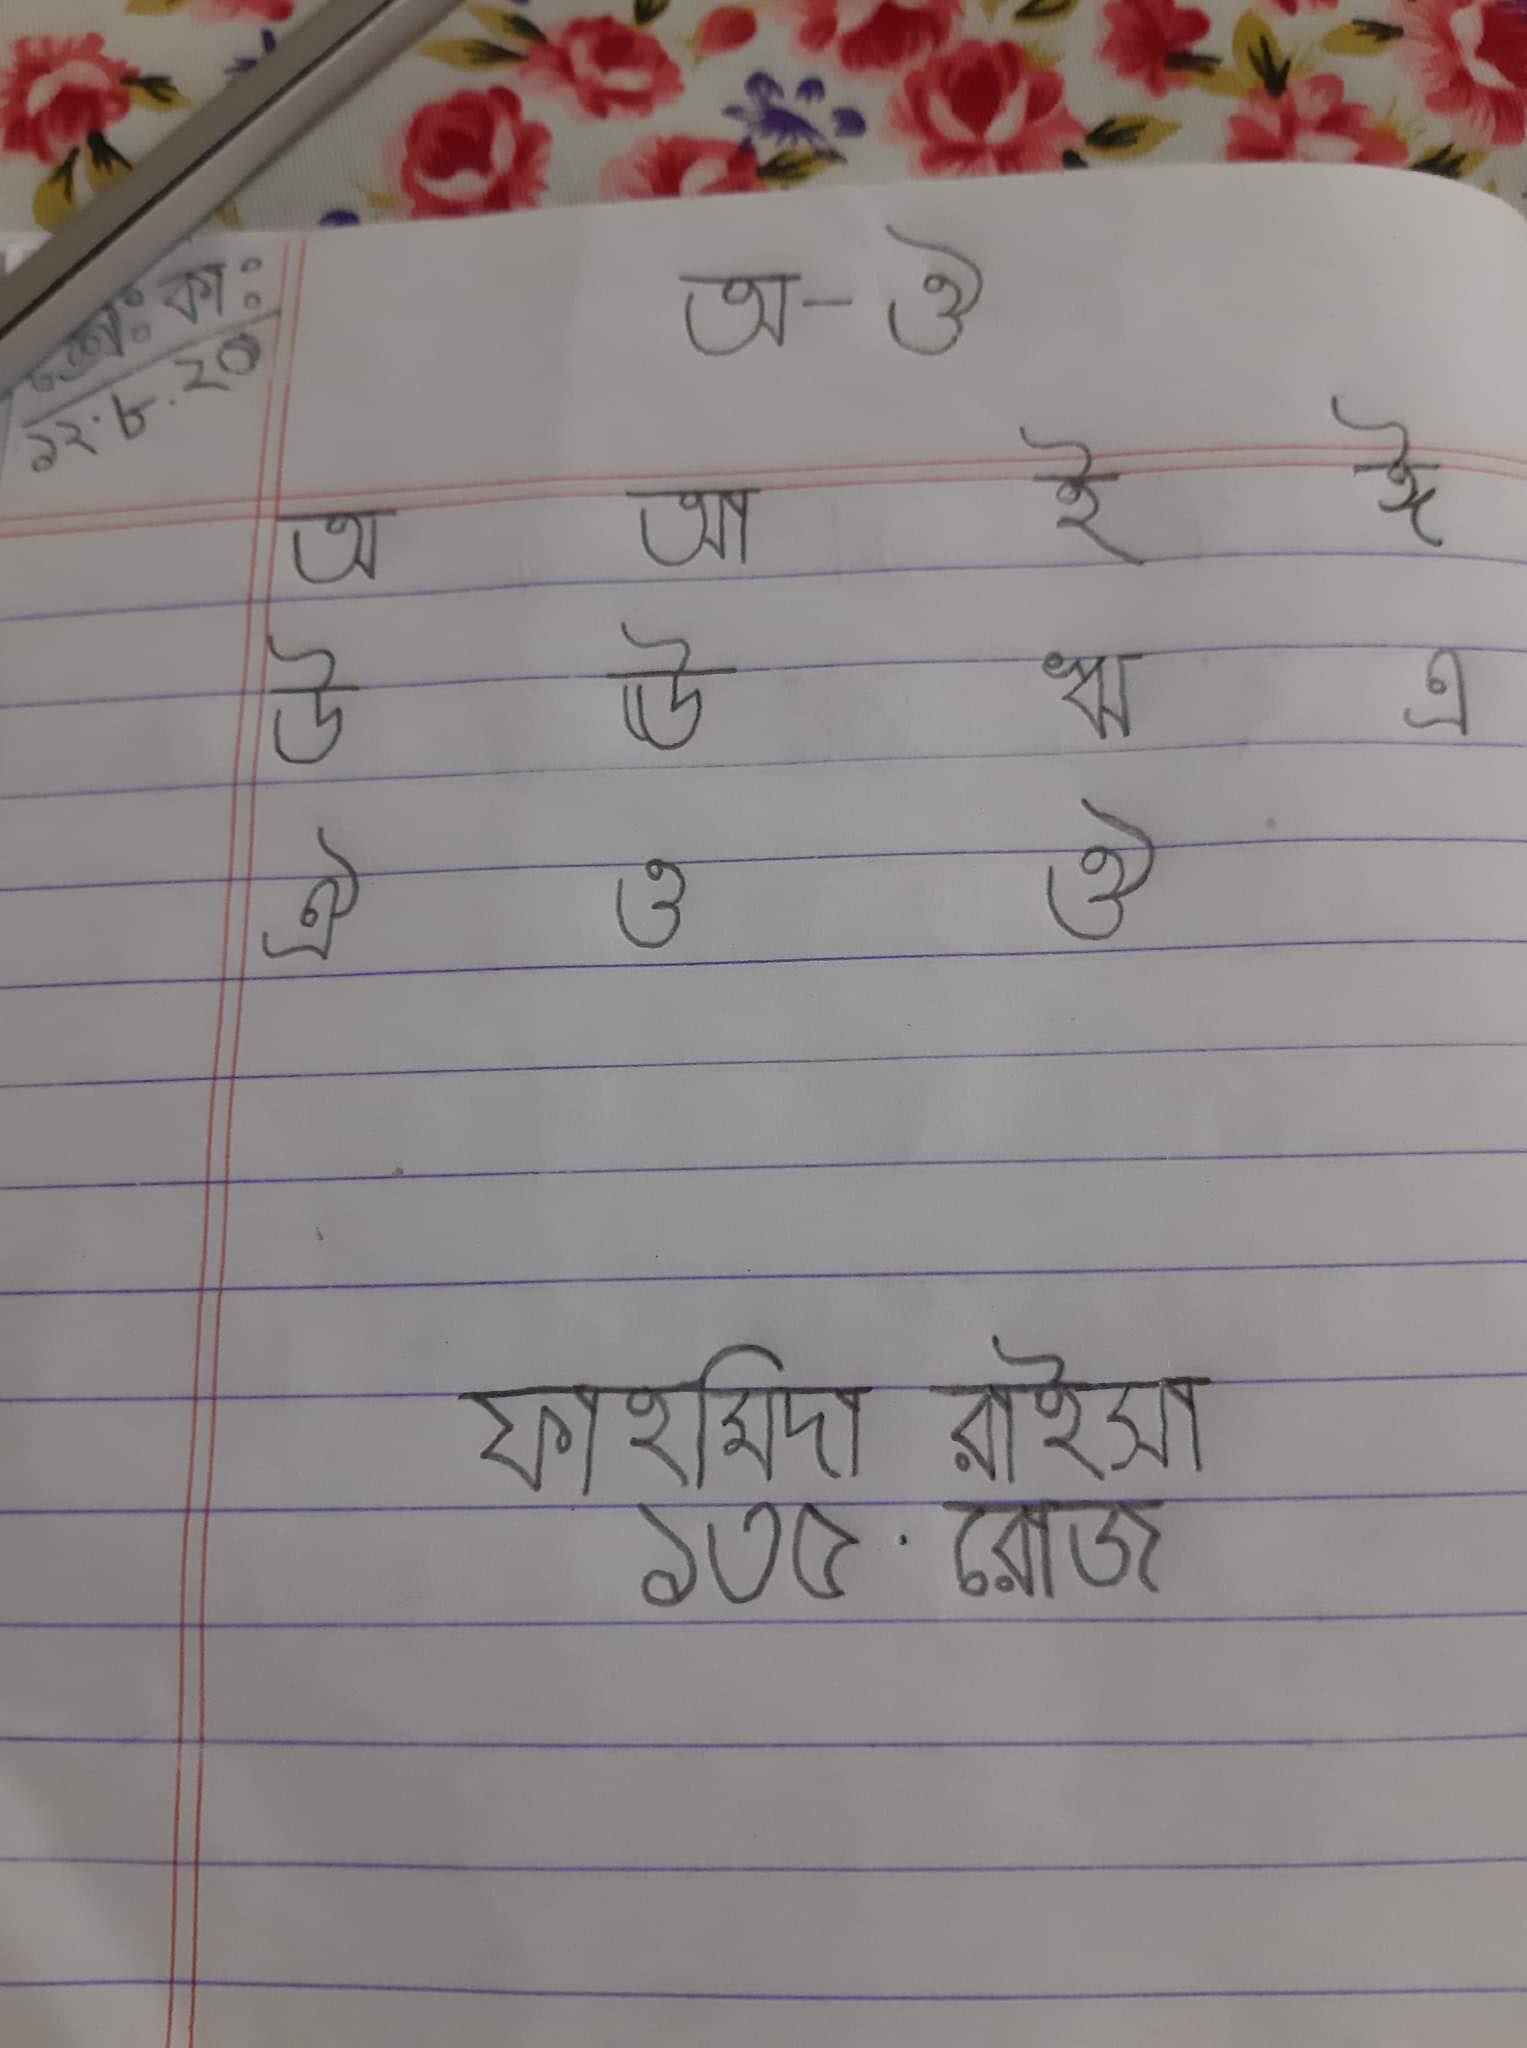 কা:
১২.৮.২০
অ-ঔ
অ আ ই ঈ
উ ঊ ঋ এ
ঐ ও ঔ
ফাহমিদা রাইসা
১৩৫. রোজ